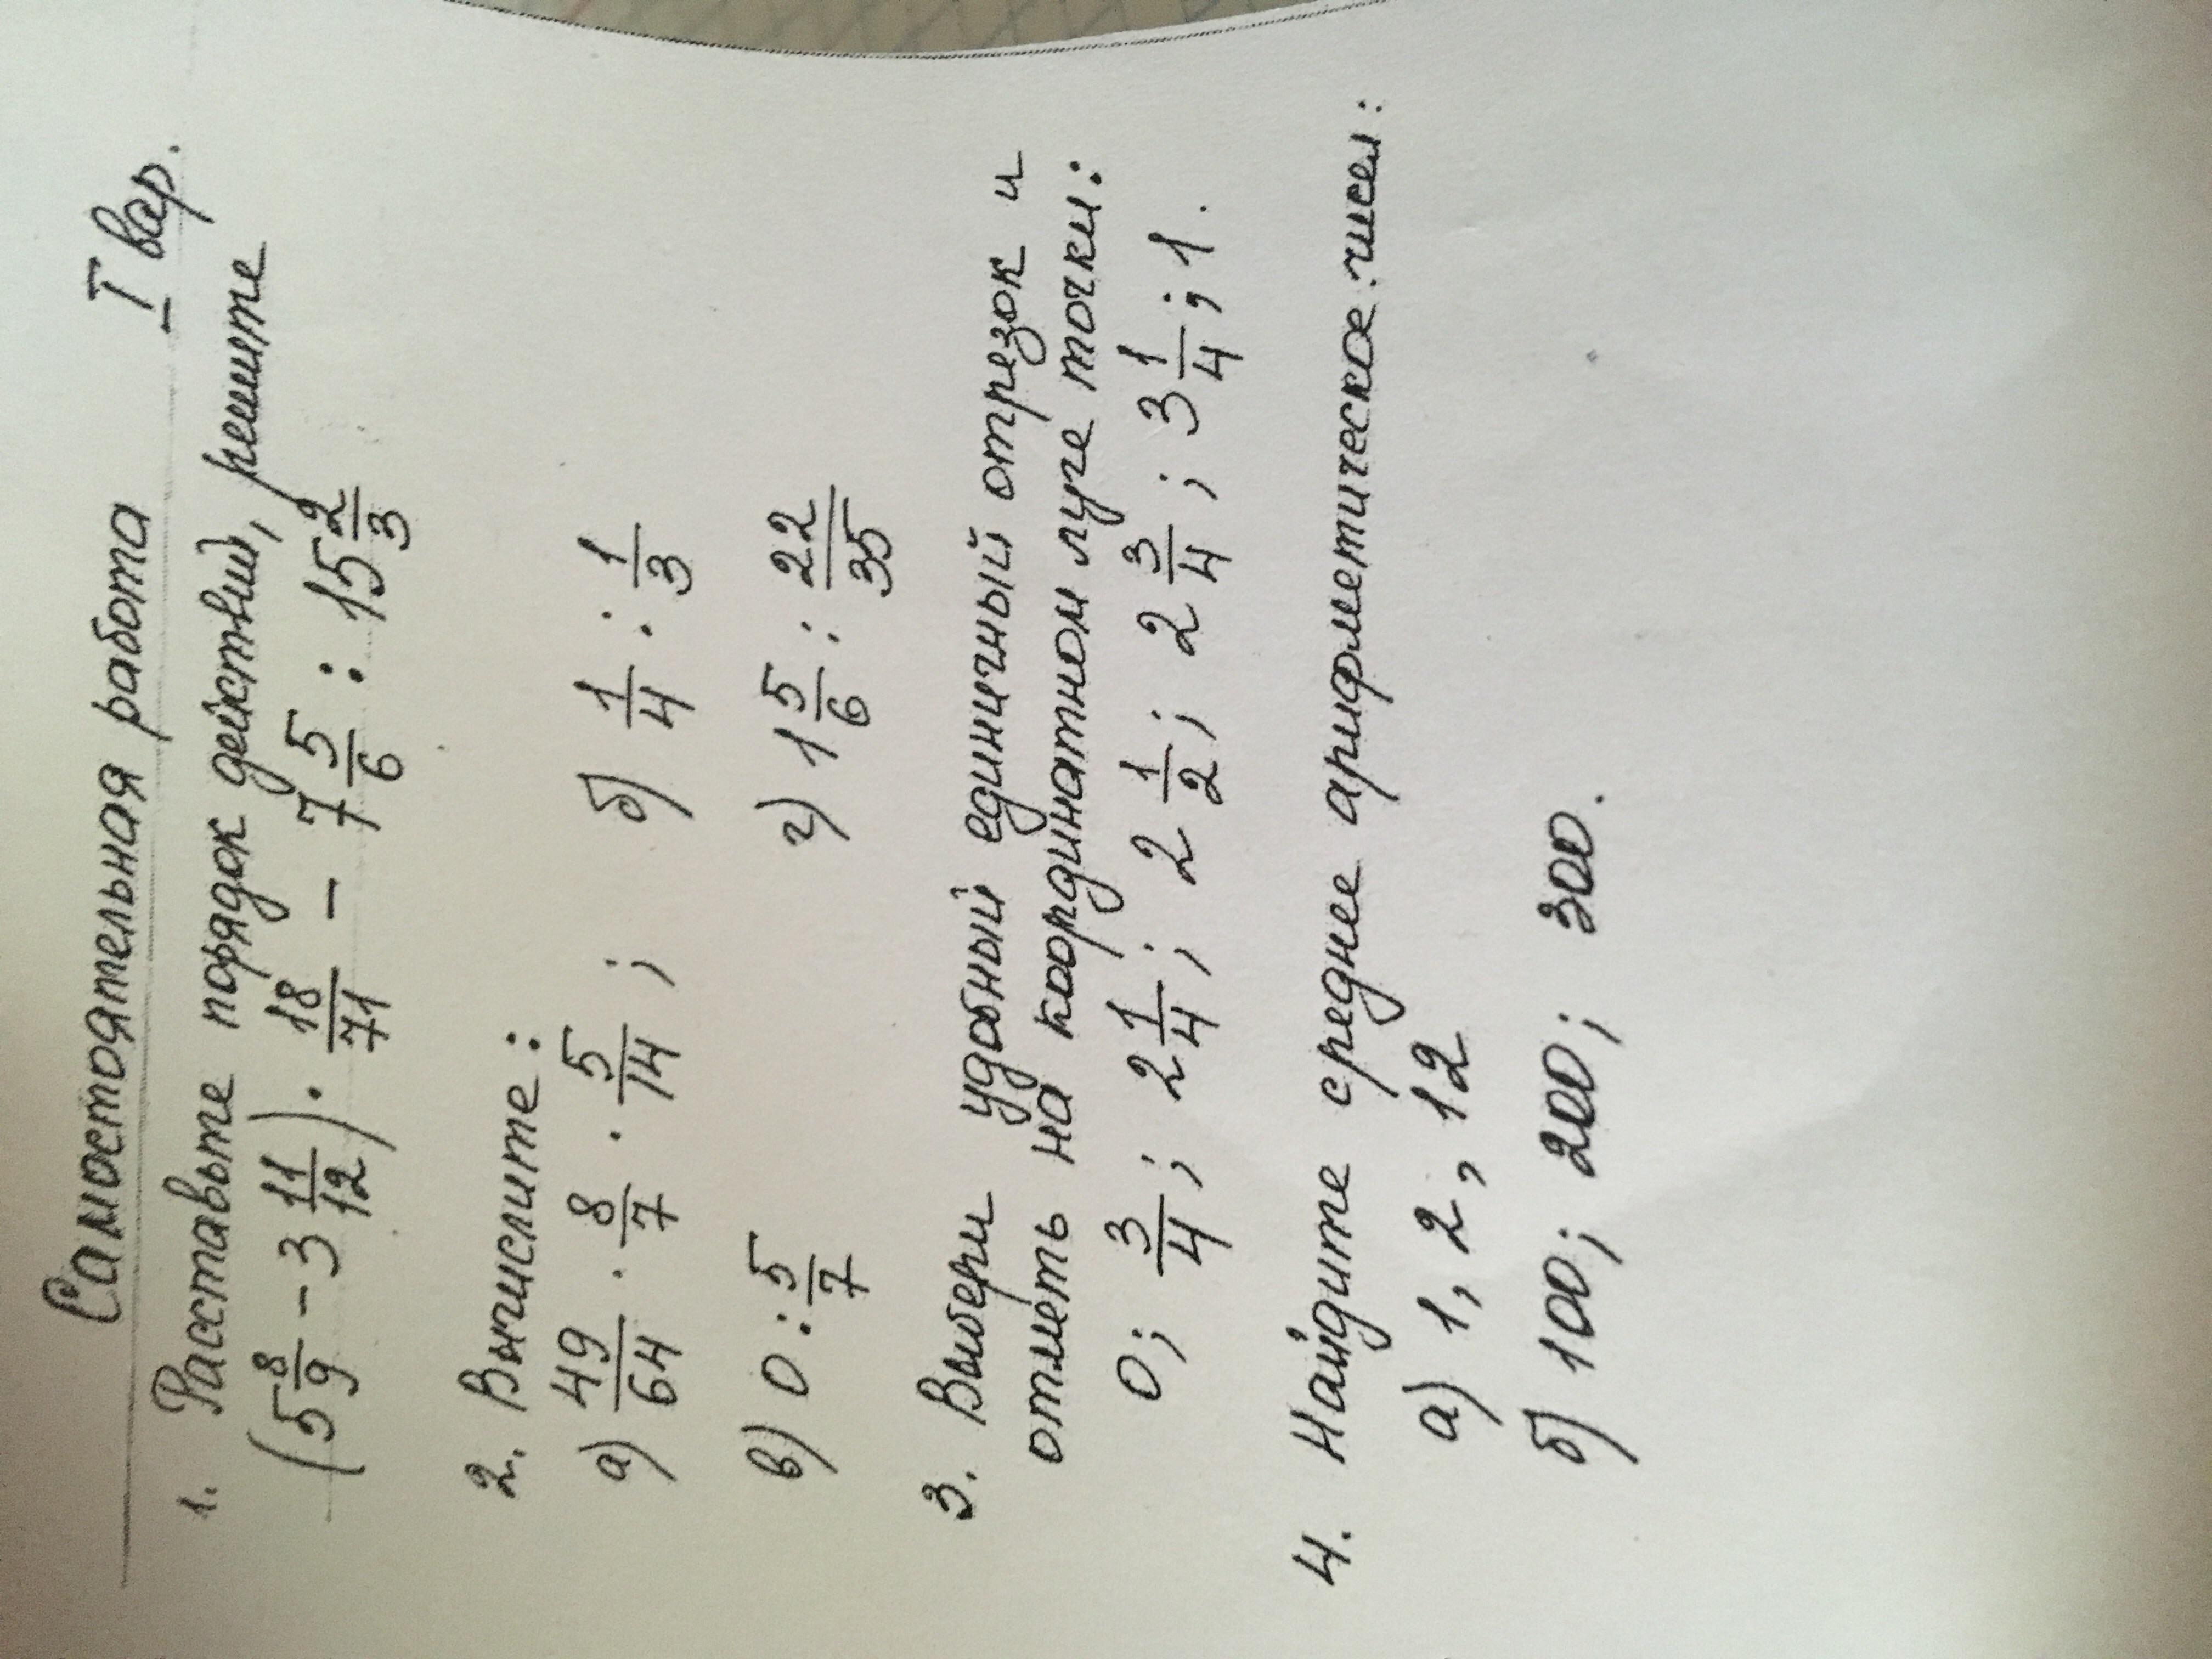 Самостоятельная работа I вар.
1. Расставьте порядок действий, решите
(5 8/9 - 3 11/12) · 18/71 - 7 5/6 : 15 2/3
2. Вычислите:
а) 49/64 · 8/7 · 5/14 ; б) 1/4 : 1/3
в) 0 : 5/7 г) 1 5/6 : 22/35
3. Выбери удобный единичный отрезок и
отметь на координатном луче точки:
0; 3/4; 2 1/4; 2 1/2; 2 3/4; 3 1/4; 1.
4. Найдите среднее арифметическое чисел:
а) 1, 2, 12
б) 100; 200; 300.